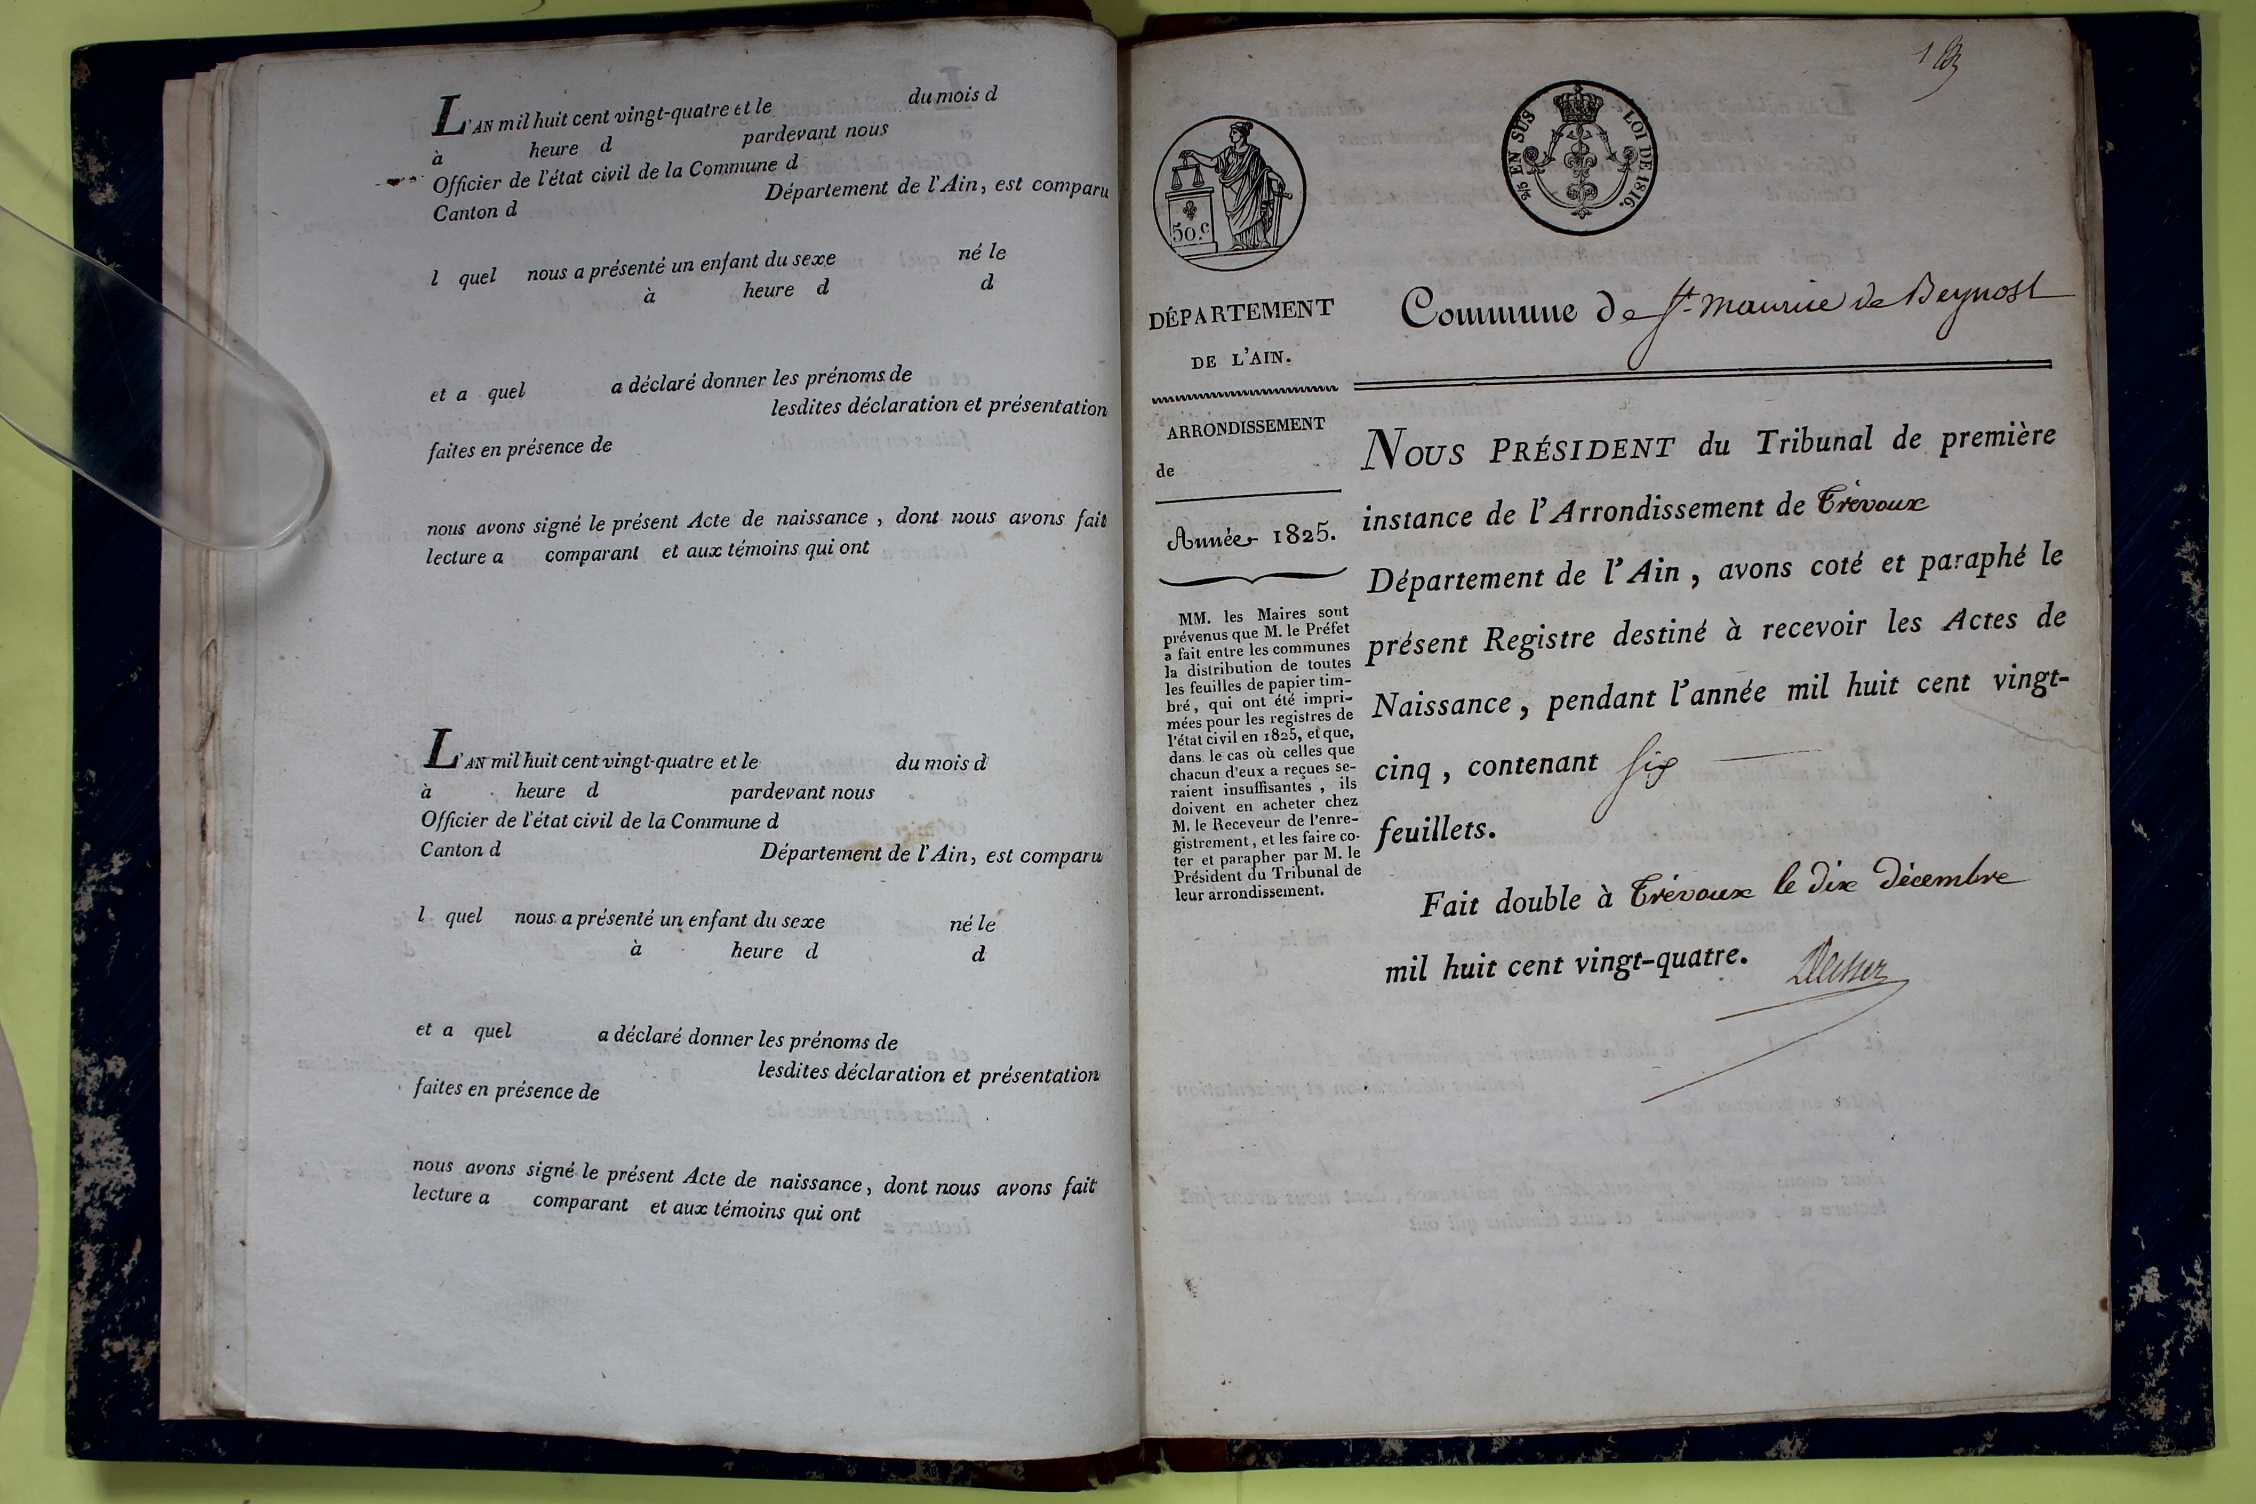 L'AN mil huit cent vingt-quatre et le du mois d
à heure d pardevant nous
Officier de l'état civil de la Commune d
Canton d Département de l'Ain, est comparu
l quel nous a présenté un enfant du sexe né le
à heure d d
et a quel a déclaré donner les prénoms de
lesdites déclaration et présentation
faites en présence de
nous avons signé le présent Acte de naissance, dont nous avons fait
lecture a comparant et aux témoins qui ont
L'AN mil huit cent vingt-quatre et le du mois d
à heure d pardevant nous
Officier de l'état civil de la Commune d
Canton d Département de l'Ain, est comparu
l quel nous a présenté un enfant du sexe né le
à heure d d
et a quel a déclaré donner les prénoms de
lesdites déclaration et présentation
faites en présence de
nous avons signé le présent Acte de naissance, dont nous avons fait
lecture a comparant et aux témoins qui ont
1
50.c
EN SUS LOI DE 1816.
DÉPARTEMENT
DE L'AIN.
ARRONDISSEMENT
de
Année 1825.
MM. les Maires sont
prévenus que M. le Préfet
a fait entre les communes
la distribution de toutes
les feuilles de papier tim-
bré, qui ont été impri-
mées pour les registres de
l'état civil en 1825, et que,
dans le cas où celles que
chacun d'eux a reçues se-
raient insuffisantes, ils
doivent en acheter chez
M. le Receveur de l'enre-
gistrement, et les faire co-
ter et parapher par M. le
Président du Tribunal de
leur arrondissement.
Commune de St. Maurice de Beynost
NOUS PRÉSIDENT du Tribunal de première
instance de l'Arrondissement de Trévoux
Département de l'Ain, avons coté et paraphé le
présent Registre destiné à recevoir les Actes de
Naissance, pendant l'année mil huit cent vingt-
cinq, contenant six
feuillets.
Fait double à Trévoux le dix décembre
mil huit cent vingt-quatre.